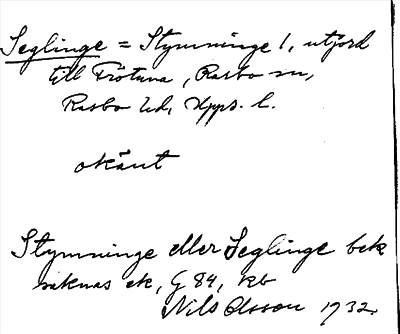 Seglinge = Stymninge 1, utjord
till Frötuna, Rasbo sn,
Rasbo hd, Upps. l.
okänt
Stymninge eller Seglinge bek
saknas ek, G 84, kb
Nils Olsson 1932